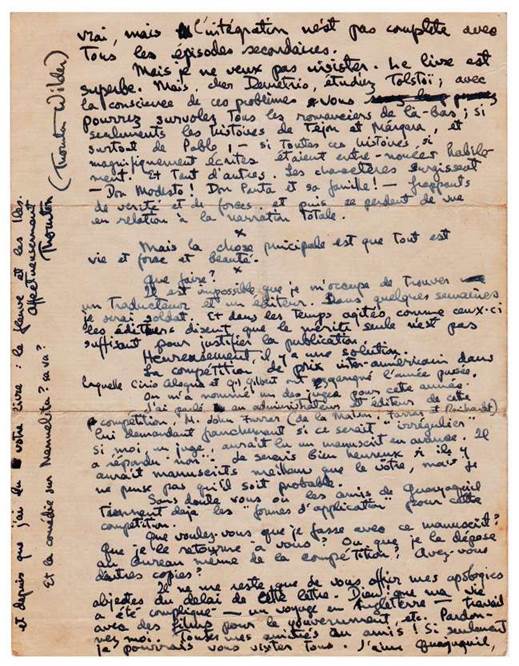 vrai, mais l'intégration n'est pas complete avec
tous les épisodes secondaires.
Mais je ne veux pas insister. Le livre est
superbe. Mais, cher Demetrio, étudiez Tolstoï; avec
la conscience de ces problèmes vous
pourrez survoler tous les romanciers de là-bas; si
seulement les histoires de Tejon et Margara, et
surtout de Pablo, — si toutes ces histoires si
magnifiquement écrites étaient entre-nouées habile-
ment. Et tant d'autres. Les charactères surgissent
— Don Modesto! Don Panta et sa famille! — frappants
de verité et de force, et puis se perdent de vue
en relation à la narration totale.
x
Mais la chose principale est que tout est
vie et force et beauté.
x
Que faire?
Il est impossible que je m'occupe de trouver
un traducteur et un éditeur. Dans quelques semaines
je serai soldat. Et dans les temps agités comme ceux-ci
les éditeurs disent que le mérite seule n'est pas
suffisant pour justifier la publication.
Heureusement, il y a une solution.
La compétition de prix inter-américain dans
laquelle Ciro Alegria et Gil Gilbert ont gagné l'année passée.
On m'a nommé un des juges pour cette année.
J'ai parlé au administrateur et éditeur de cette
compétition, M. John Farrar (de la Maison, Farrar et Rinehardt)
lui demandant franchement si ce serait "irrégulier"
si moi, un juge, aurait lu un manuscrit en avance. Il
a répondu non. Je serais bien heureux si il y
aurait manuscrits meilleur que le votre, mais je
ne pense pas qu'il soit probable.
Sans doute vous ou les amis de Guayaquil
tiennent deja les "formes d'application" pour cette
compétition.
Que voulez-vous que je fasse avec ce manuscrit?
Que je le retourne à vous? Ou que je la dépose
au bureau même de la compétition? Avez-vous
d'autres copies?
Il ne me reste que de vous offrir mes apologies
abjectes du delai de cette lettre. Dieu! que ma vie
a été compliqué — un voyage en Angleterre — travail
avec des films pour le gouvernment, etc. Pardon-
nez moi. Toutes mes amitiés au amis! Si seulement
je pourrais vous visiter tous. J'aime Guayaquil,
et depuis que j'ai lu votre livre: le fleuve et les Iles.
Et la comédie sur Manuelita? sa va?
Affectueusement
Thornton
(Thornton Wilder)